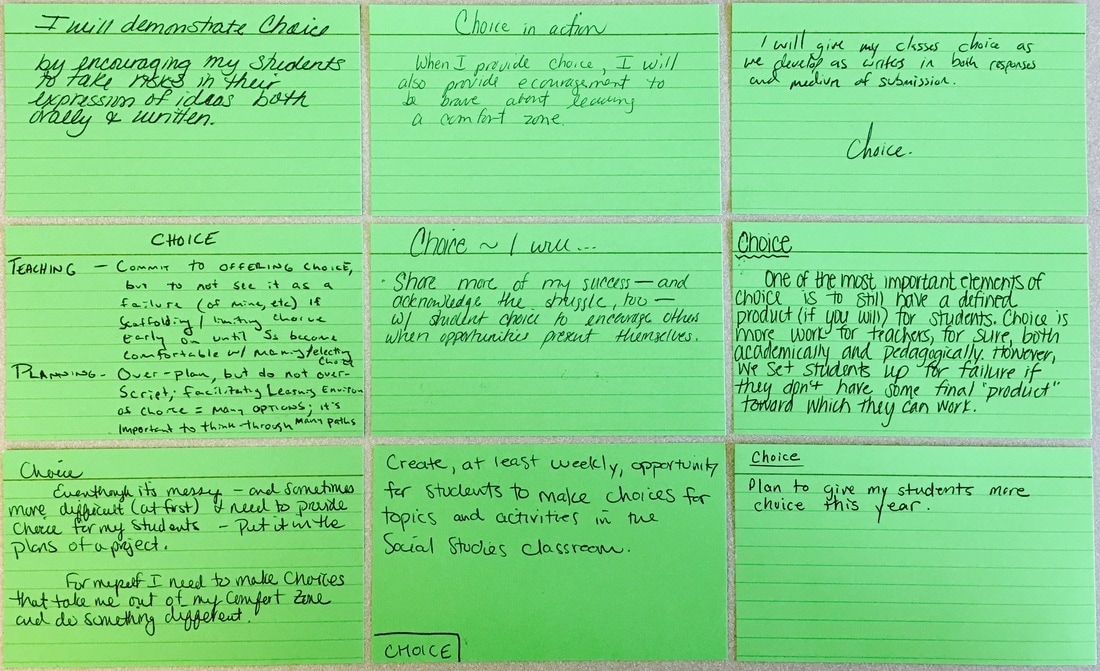 I will demonstrate Choice
by encouraging my students
to take risks in their
expression of ideas both
orally & written.
Choice in action
When I provide choice, I will
also provide ecouragement to
be brave about leaving
a comfort zone.
I will give my classes choice as
we develop as writes in both responses
and medium of submission.
Choice.
CHOICE
TEACHING - COMMIT TO OFFERING CHOICE,
but to not see it as a
failure (of mine, etc) if
scaffolding / limiting choice
early on until Ss become
comfortable w/ making/electing
choice
PLANNING - Over-plan, but do not over-
script, facilitating Learning Environ
of choice = many options; it's
important to think through many paths
Choice ~ I will...
· Share more of my success — and
acknowledge the struggle, too —
w/ student choice to encourage others
when opportunities present themselves.
Choice
One of the most important elements of
choice is to still have a defined
product (if you will) for students. Choice is
more work for teachers, for sure, both
academically and pedagogically. However,
we set students up for failure if
they don't have some final "product"
toward which they can work.
Choice
Eventhough its messy - and sometimes
more difficult (at first) I need to provide
Choice for my students - Put it in the
plans of a project.
For myself I need to make Choices
that take me out of my Comfort Zone
and do something different.
Create, at least weekly, opportunity
for students to make choices for
topics and activities in the
Social Studies classroom.
CHOICE
Choice
Plan to give my students more
choice this year.